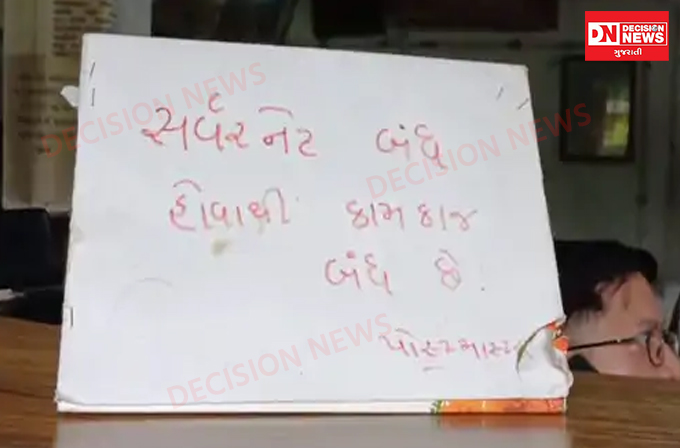 DECISION
NEWS
ગુજરાતી
સર્વર નેટ બંધ
હોવાથી કામકાજ
બંધ છે.
પોસ્ટમાસ્તર
DECISION NEWS
DECISION NEWS
DECISION NEWS